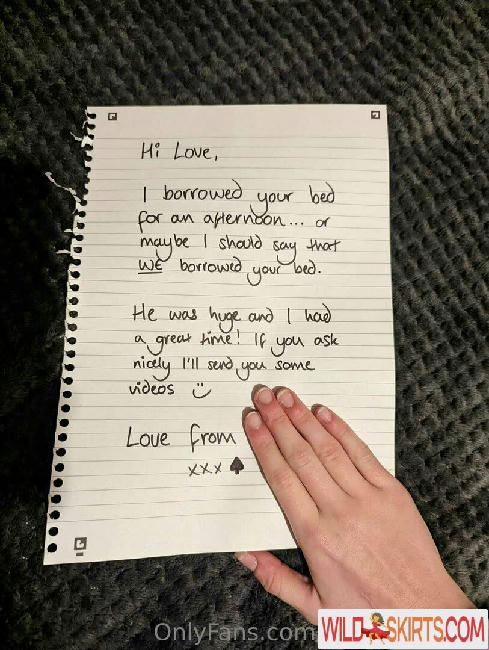 Hi Love,
I borrowed your bed
for an afternoon... or
maybe I should say that
WE borrowed your bed.
He was huge and I had
a great time! If you ask
nicely I'll send you some
videos :)
Love from
xxx ♠
OnlyFans.com
WILDSKIRTS.COM